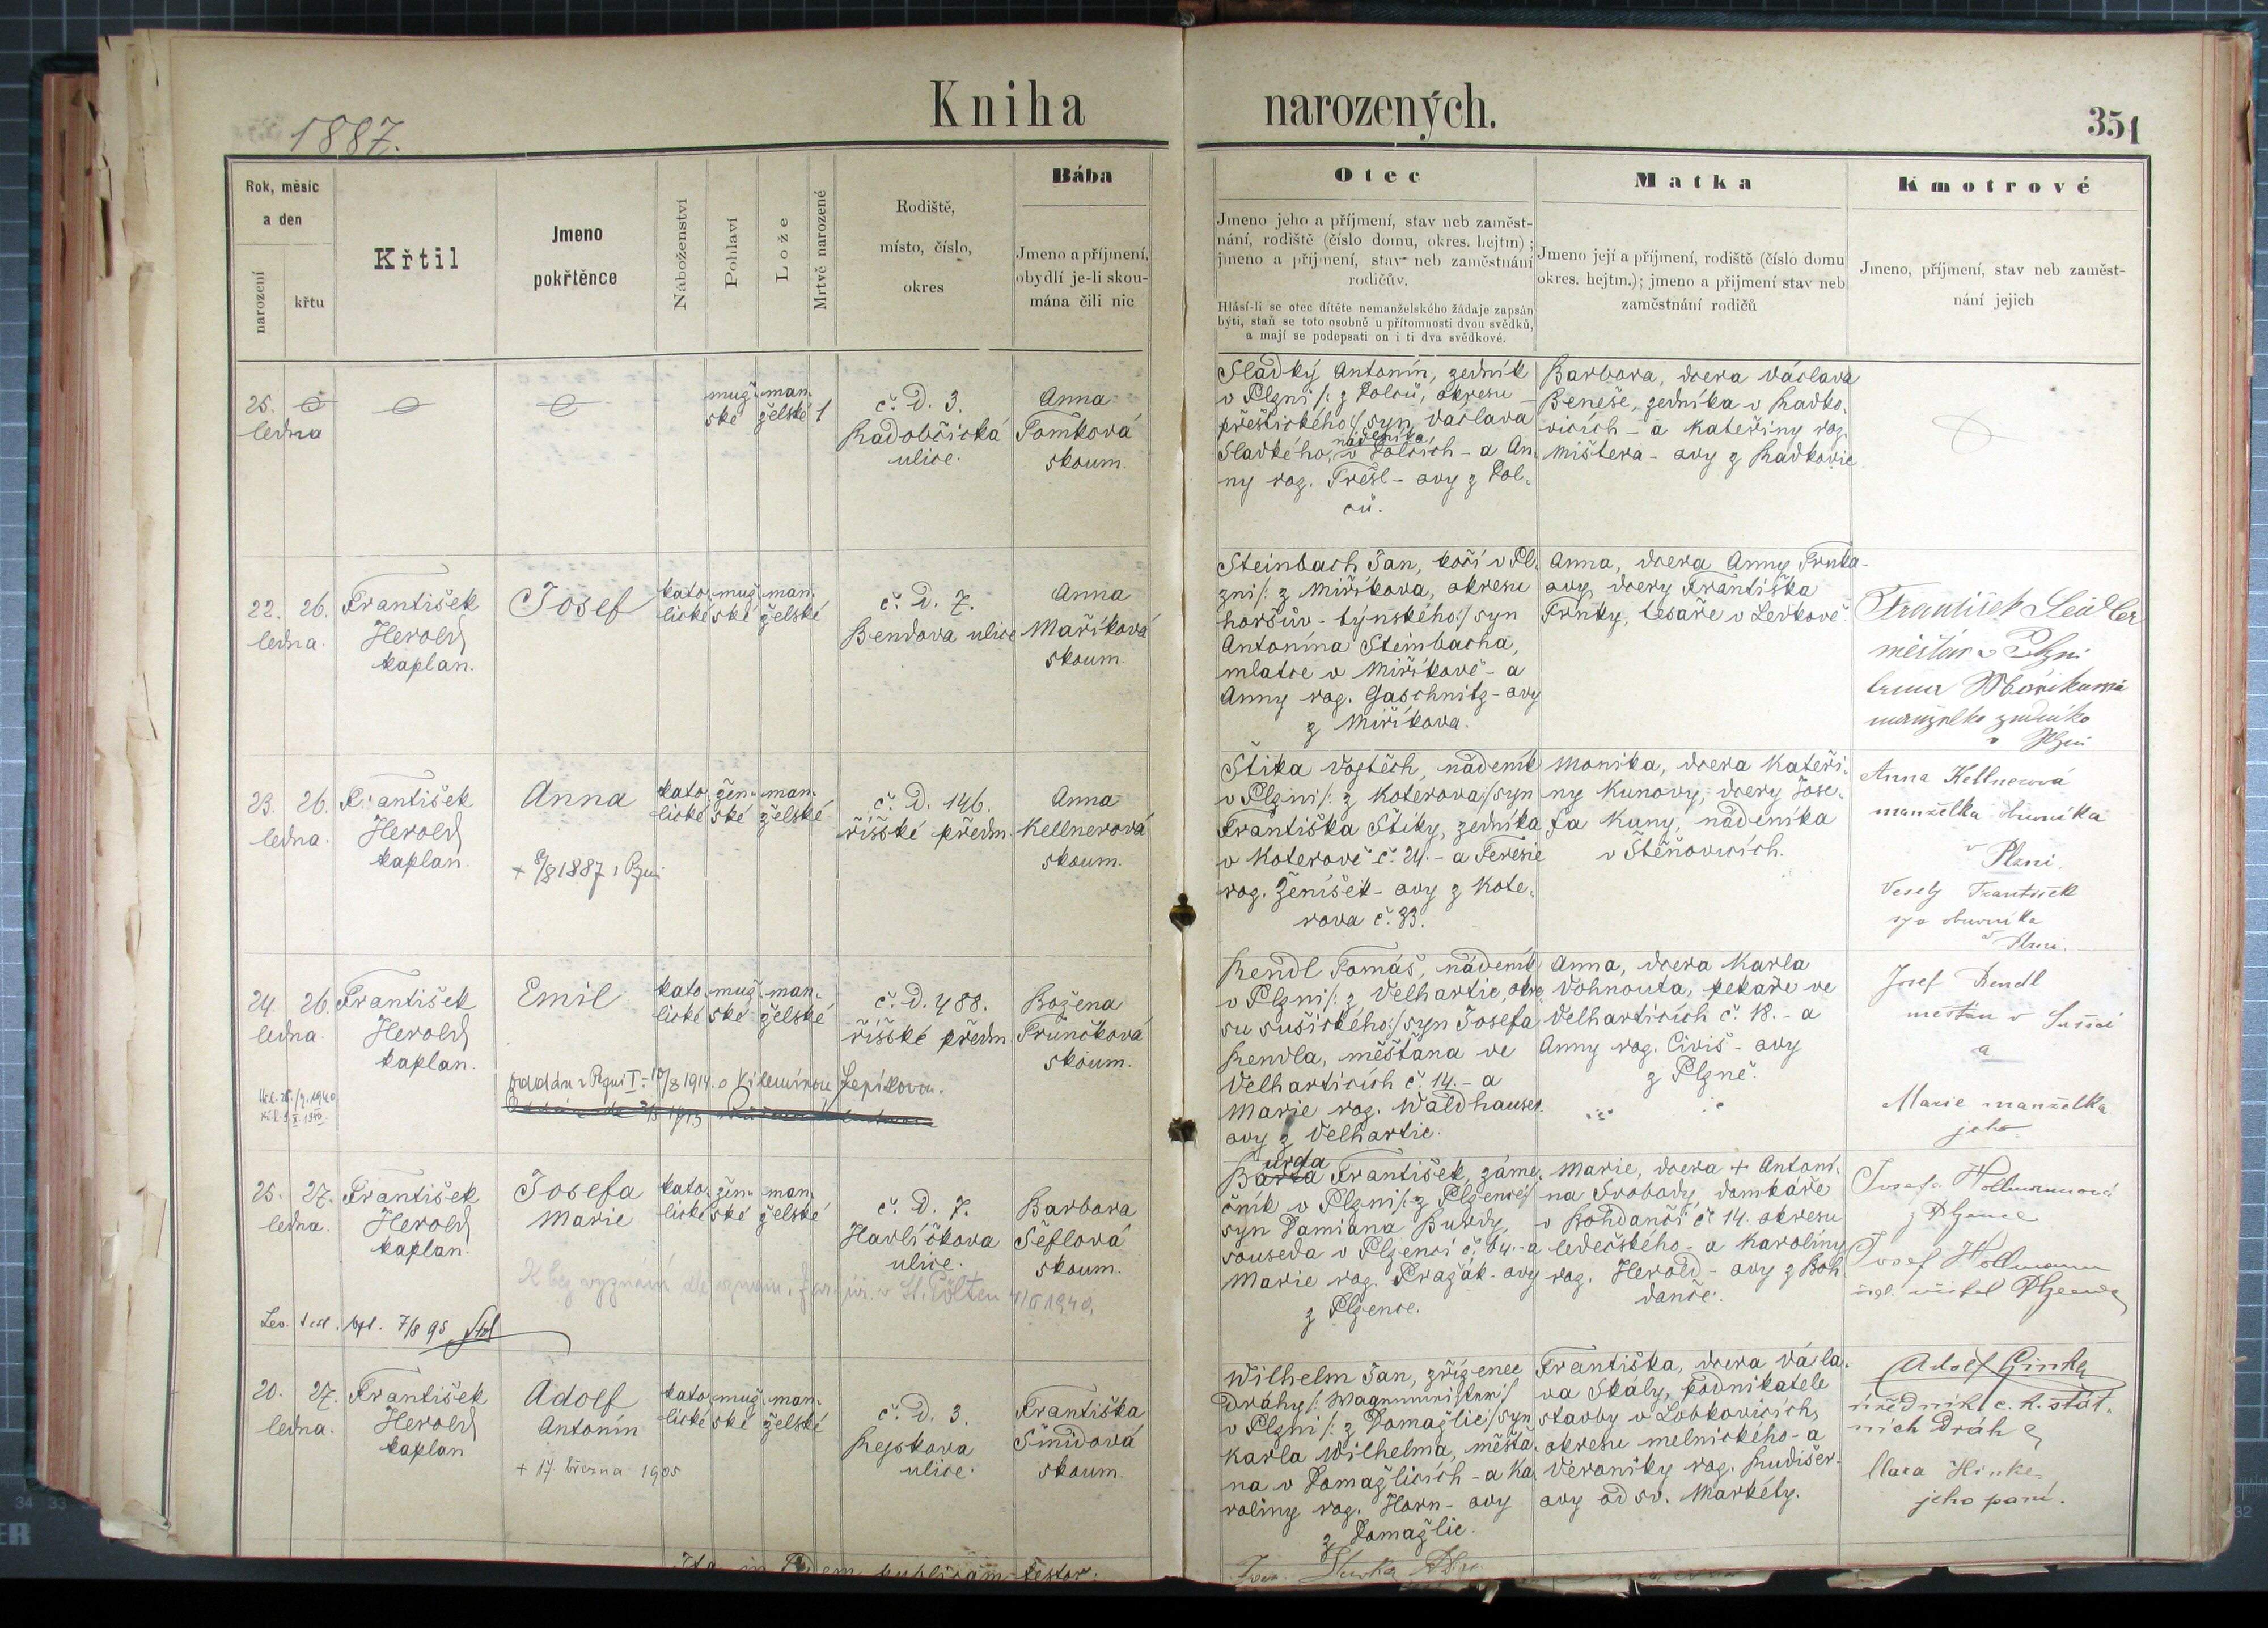 Kniha narozených.
1887.
351
Rok, měsíc
a den
narození
křtu
Křtil
Jmeno
pokřtěnce
Náboženství
Pohlaví
Lože
Mrtvě narozené
Rodiště,
místo, číslo,
okres
Bába
Jmeno a příjmení,
obydlí je-li skou-
mána čili nic
Otec
Jmeno jeho a příjmení, stav neb zaměst-
nání, rodiště (číslo domu, okres. hejtm) ;
jmeno a příjmení, stav neb zaměstnání
rodičův.
Hlásí-li se otec dítěte nemanželského žádaje zapsán
býti, staň se toto osobně u přítomnosti dvou svědků,
a mají se podepsati on i ti dva svědkové.
Matka
Jmeno její a příjmení, rodiště (číslo domu
okres. hejtm.); jmeno a přijmení stav neb
zaměstnání rodičů
Kmotrové
Jmeno, příjmení, stav neb zaměst-
nání jejich
25.
ledna
muž-
ské
man-
želské
1
č. d. 3.
Radobčická
ulice.
Anna
Tomková
skoum.
Sladký Antonín, zedník
v Plzni /: z Dolců, okresu
přeštického :/ syn Václava
Sladkého, nádeníka v Dolcích - a An-
ny roz. Trešl - ovy z Dol-
ců.
Barbora, dcera Václava
Beneše, zedníka v Radko-
vicích - a Kateřiny roz.
Mištera - ovy z Radkovic
22. 26.
ledna.
František
Herold
kaplan.
Josef
kato-
lické
muž-
ské
man-
želské
č. d. 7.
Bendova ulice
Anna
Maříková
skoum.
Steinbach Jan, kočí v Pl-
zni /: z Miříkova, okresu
horšův - týnského :/ syn
Antonína Steinbacha,
mlatce v Miříkově - a
Anny roz. Gaschnitz - ovy
z Miříkova.
Anna, dcera Anny Frnka-
ovy, dcery Františka
Frnky, tesaře v Ledkově.
František
měšťan v Plzni
manželka zedníka
v Plzni
23. 26.
ledna.
František
Herold
kaplan.
Anna
+ 1887 v Plzni
kato-
lické
žen-
ské
man-
želské
č. d. 146.
říšské předm.
Anna
Kellnerová
skoum.
Štika Vojtěch, nádeník
v Plzni /: z Koterova :/ syn
Františka Štiky, zedníka
v Koterově č. 24. - a Terezie
roz. Ženíšek - ovy z Kote-
rova č. 33.
Monika, dcera Kateři-
ny Kunovy, dcery Jose-
fa Kuny, nádeníka
v Štěnovicích.
Anna Kellnerová
manželka obuvníka
v Plzni.
Veselý František
syn obuvníka
v Plzni.
24. 26.
ledna.
František
Herold
kaplan.
Emil
kato-
lické
muž-
ské
man-
želské
č. d. 488.
říšské předm.
Božena
Průnčková
skoum.
Rendl Tomáš, nádeník
v Plzni /: z Velhartic, okre-
su sušického :/ syn Josefa
Rendla, měšťana ve
Velharticích č. 14. - a
Marie roz. Waldhauser-
ovy z Velhartic.
Anna, dcera Karla
Vohnouta, pekaře ve
Velharticích č. 18. - a
Anny roz. Civiš - ovy
z Plzně.
Josef Rendl
měšťan v Sušici
a
Marie manželka
jeho.
oddán v Plzni I. 1914. s Vilemínou
25. 27.
ledna.
František
Herold
kaplan.
Josefa
Marie
kato-
lické
žen-
ské
man-
želské
č. d. 7.
Havlíčkova
ulice.
Barbora
Šeflová
skoum.
urda
Barta František, záme-
čník v Plzni /: z Plzence :/
syn Damiana Burdy,
souseda v Plzenci č. 64. - a
Marie roz. Pražák - ovy
z Plzence.
Marie, dcera + Antoní-
na Svobody, domkáře
v Bohdanči č. 14. okresu
ledečského - a Karoliny
roz. Herold - ovy z Boh-
danče.
Josefa Hollmannová
z Plzence
Josef Hollmann
učitel Plzenec
bez vyznání dle oznám. v St. Pölten 1940
7/8 95
20. 27.
ledna.
František
Herold
kaplan
Adolf
Antonín
+ 17. března 1905
kato-
lické
muž-
ské
man-
želské
č. d. 3.
Rejskova
ulice.
Františka
Šmídová
skoum.
Wilhelm Jan, zřízenec
dráhy /: Wagenmeister :/
v Plzni /: z Domažlic :/ syn
Karla Wilhelma, měšťa-
na v Domažlicích - a Ka-
roliny roz. Horn - ovy
z Domažlic.
Františka, dcera Václa-
va Skály, podnikatele
stavby v Lobkovicích,
okresu mělnického - a
Veroniky roz. Rudišer-
ovy od sv. Markéty.
Adolf
úředník c. k. stát-
ních drah
jeho paní.
Ita in fidem publicam testor: